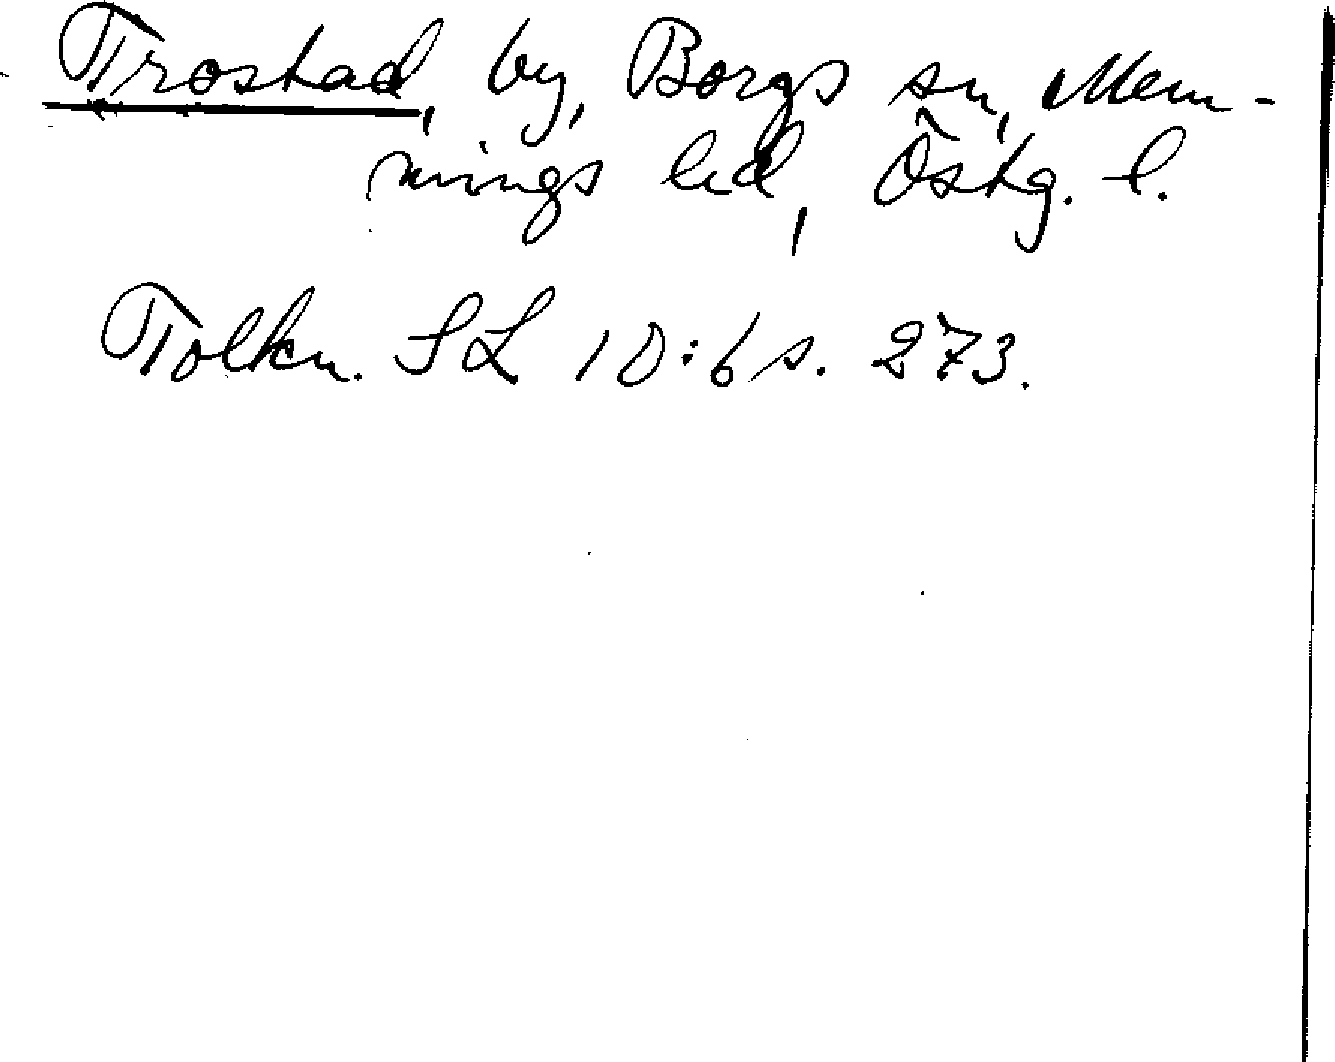 Trostad, by, Borgs sn, Mem-
mings hd, Östg. l.
Tolkn. SL 10:6 s. 273.